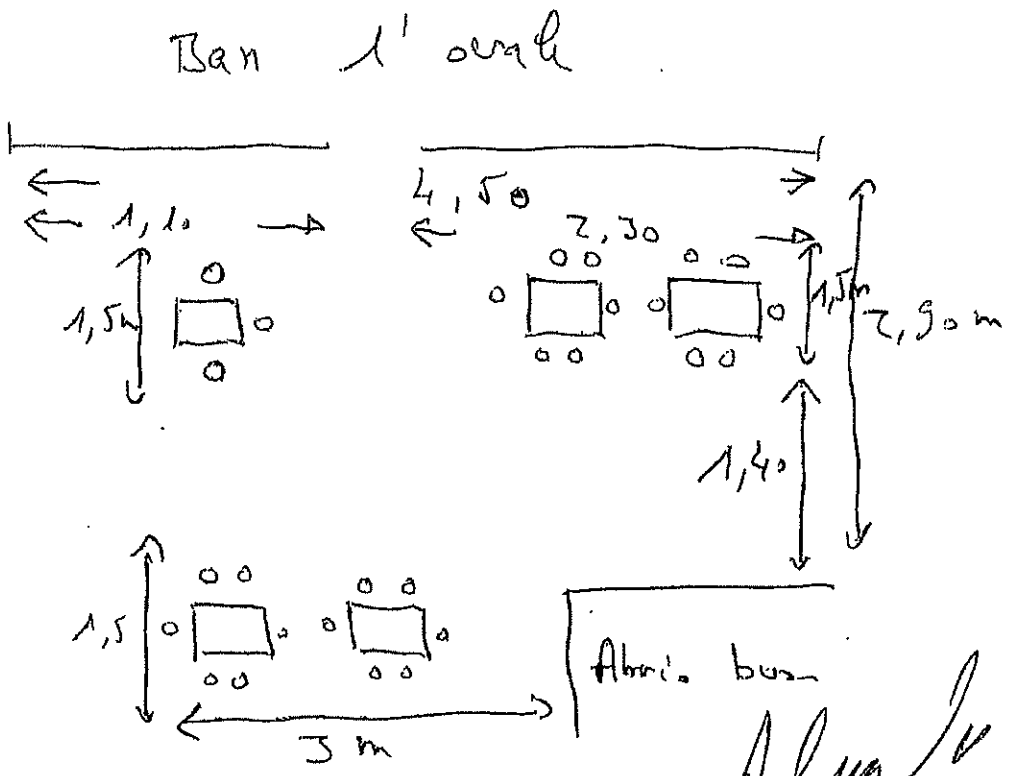 Bar l'ovale
4,50
1,10
2,30
1,5m
1,5m
2,90 m
1,40
1,5
3 m
Abris bus